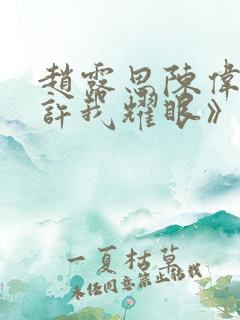 趙露思陳偉
許我耀眼》
一夏枯草
未经同意禁止转载